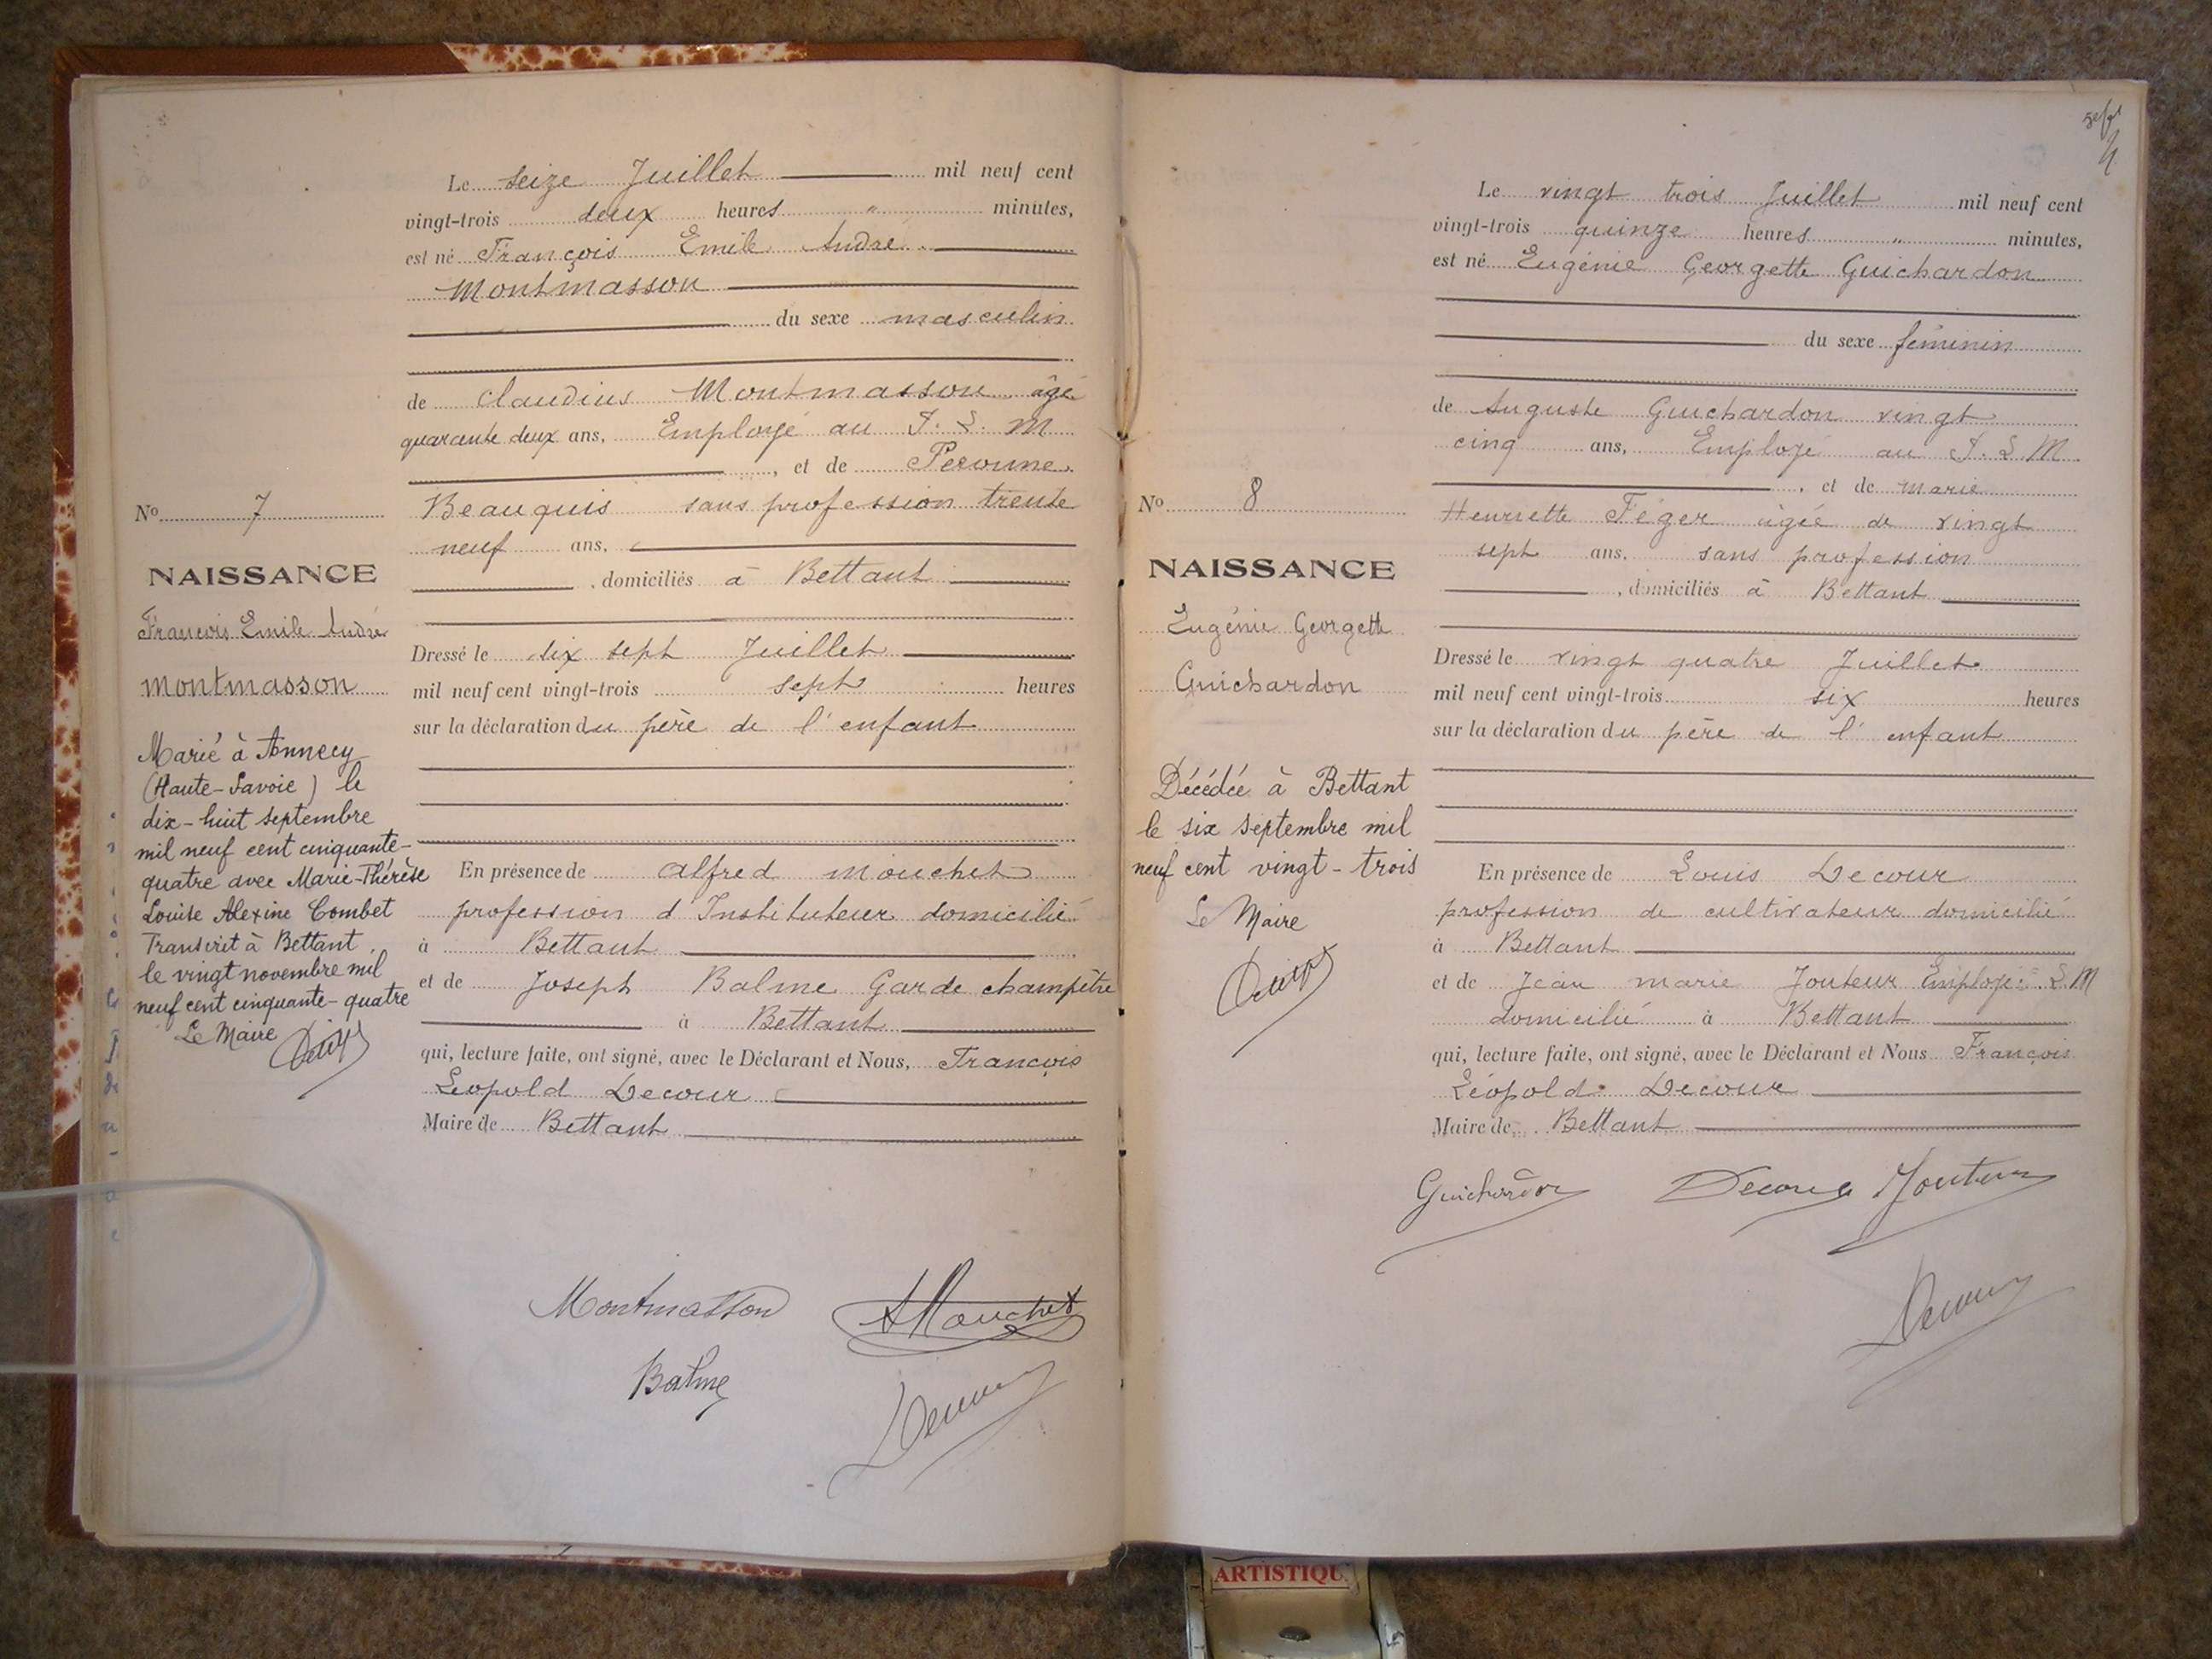 Le seize Juillet mil neuf cent
vingt-trois deux heures " minutes,
est né François Emile André
Montmasson
du sexe masculin
de Claudius Montmasson âgé
quarante deux ans, Employé au P. L. M
, et de Peronne
Beauquis sans profession trente
neuf ans,
, domiciliés à Bettant
Dressé le dix sept Juillet
mil neuf cent vingt-trois sept heures
sur la déclaration du père de l'enfant
En présence de Alfred Mouchet
profession d'Instituteur domicilié
à Bettant
et de Joseph Balme Garde champêtre
à Bettant
qui, lecture faite, ont signé, avec le Déclarant et Nous, François
Leopold Decour
Maire de Bettant
Montmasson AMouchet
Balme
Decour
No 7
NAISSANCE
François Emile André
Montmasson
Marié à Annecy
(Haute-Savoie) le
dix-huit septembre
mil neuf cent cinquante-
quatre avec Marie-Thérèse
Louise Alexine Combet
Transcrit à Bettant,
le vingt novembre mil
neuf cent cinquante-quatre
Le Maire
Le vingt trois Juillet mil neuf cent
vingt-trois quinze heures " minutes,
est né Eugénie Georgette Guichardon
du sexe féminin
de Auguste Guichardon vingt
cinq ans, Employé au P. L M
, et de Marie
Henriette Féger âgée de vingt
sept ans, sans profession
, domiciliés à Bettant
Dressé le vingt quatre Juillet
mil neuf cent vingt-trois six heures
sur la déclaration du père de l'enfant
En présence de Louis Decour
profession de cultivateur domicilié
à Bettant
et de Jean Marie Jouteur Employé L M
domicilié à Bettant
qui, lecture faite, ont signé, avec le Déclarant et Nous François
Léopold Decour
Maire de Bettant
Guichardon Decour Jouteur
Decour
No 8
NAISSANCE
Eugénie Georgette
Guichardon
Décédée à Bettant
le six septembre mil
neuf cent vingt-trois
Le Maire
ARTISTIQU